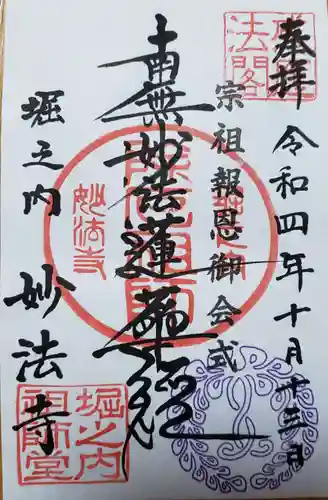 奉拝
令和四年十月十三日
宗祖報恩御会式
南無妙法蓮華経
堀之内
妙法寺
妙法寺
堀之内
堀之内
祖師堂